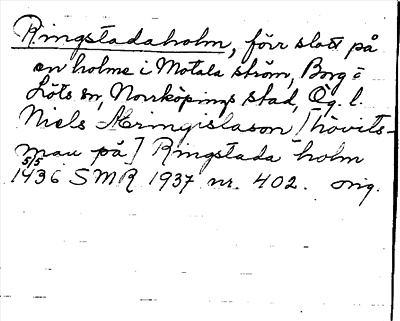 Ringstadaholm, förr slott på
en holme i Motala ström, Borg o
Löts sn, Norrköpings stad, Ög. l.
Niels Aringislason [hövits-
man på] Ringstada holm
5/5
1436 SMR 1937 nr. 402. orig.